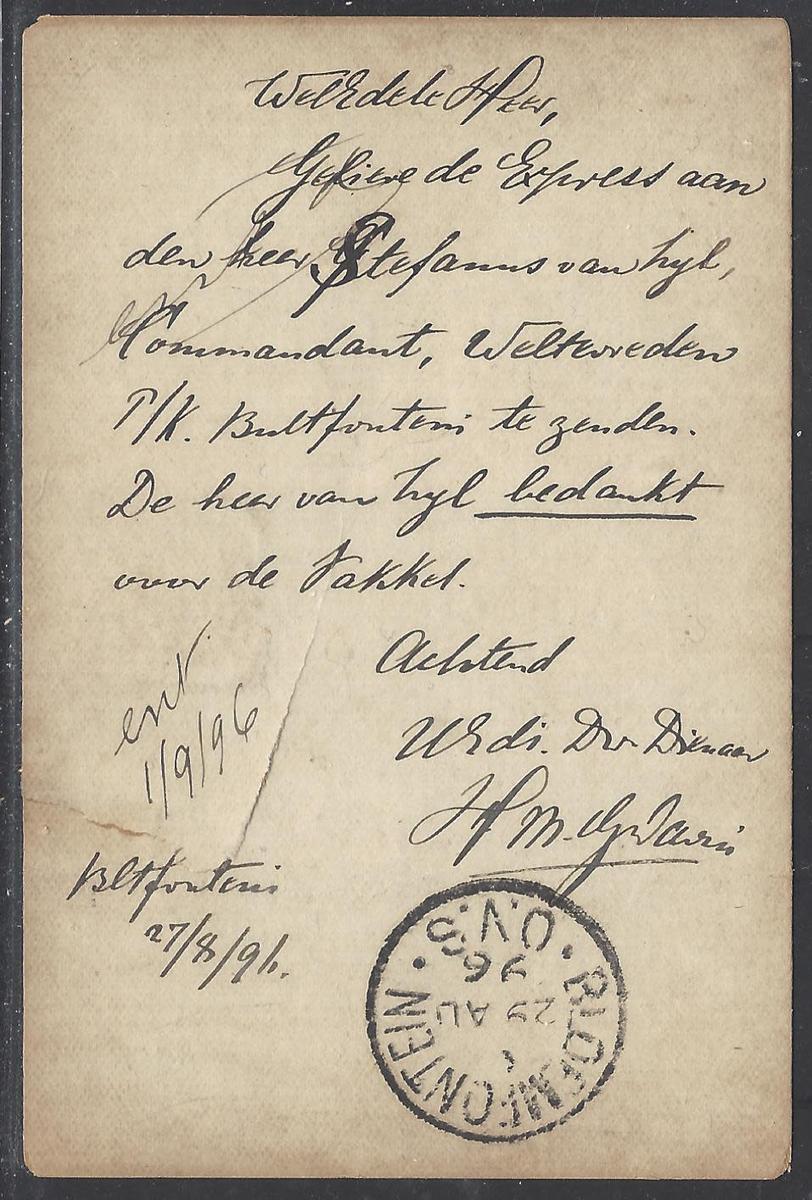 WelEdele Heer,
Gelieve de Express aan
den heer Stefanus van Zyl,
Commandant, Weltevreden
P/K. Bultfontein te zenden.
De heer van Zyl bedankt
voor de Fakkel.
Achtend
UEdl. Dw. Dienaar
H. M. G. Davis
ent.
1/9/96
Bltfontein
27/8/96.
BLOEMFONTEIN · O.V.S. ·
29 AU
96